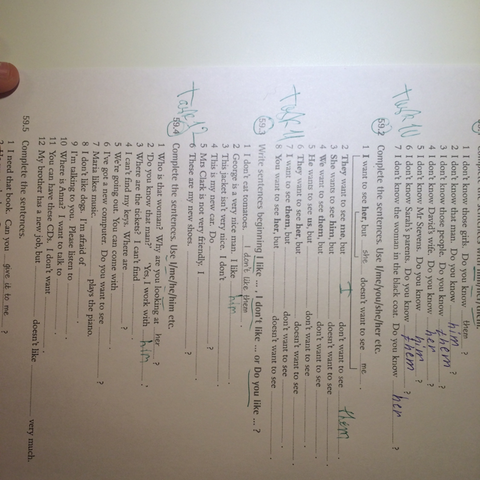 1 I don't know those girls. Do you know them ?
2 I don't know that man. Do you know him ?
3 I don't know those people. Do you know them ?
4 I don't know David's wife. Do you know her ?
5 I don't know Mr Stevens. Do you know him ?
6 I don't know Sarah's parents. Do you know them ?
7 I don't know the woman in the black coat. Do you know her ?
task 10
59.2 Complete the sentences. Use I/me/you/she/her etc.
1 I want to see her, but she doesn't want to see me .
2 They want to see me, but I don't want to see them .
3 She wants to see him, but doesn't want to see .
4 We want to see them, but don't want to see .
5 He wants to see us, but don't want to see .
6 They want to see her, but doesn't want to see .
7 I want to see them, but don't want to see .
8 You want to see her, but doesn't want to see .
task 11
59.3 Write sentences beginning I like ... , I don't like ... or Do you like ... ?
1 I don't eat tomatoes. I don't like them .
2 George is a very nice man. I like him .
3 This jacket isn't very nice. I don't .
4 This is my new car. Do ?
5 Mrs Clark is not very friendly. I .
6 These are my new shoes. ?
task 12
59.4 Complete the sentences. Use I/me/he/him etc.
1 Who is that woman? Why are you looking at her ?
2 'Do you know that man?' 'Yes, I work with him .'
3 Where are the tickets? I can't find .
4 I can't find my keys. Where are ?
5 We're going out. You can come with .
6 I've got a new computer. Do you want to see ?
7 Maria likes music. plays the piano.
8 I don't like dogs. I'm afraid of .
9 I'm talking to you. Please listen to .
10 Where is Anna? I want to talk to .
11 You can have these CDs. I don't want .
12 My brother has a new job, but doesn't like very much.
59.5 Complete the sentences.
1 I need that book. Can you give it to me ?